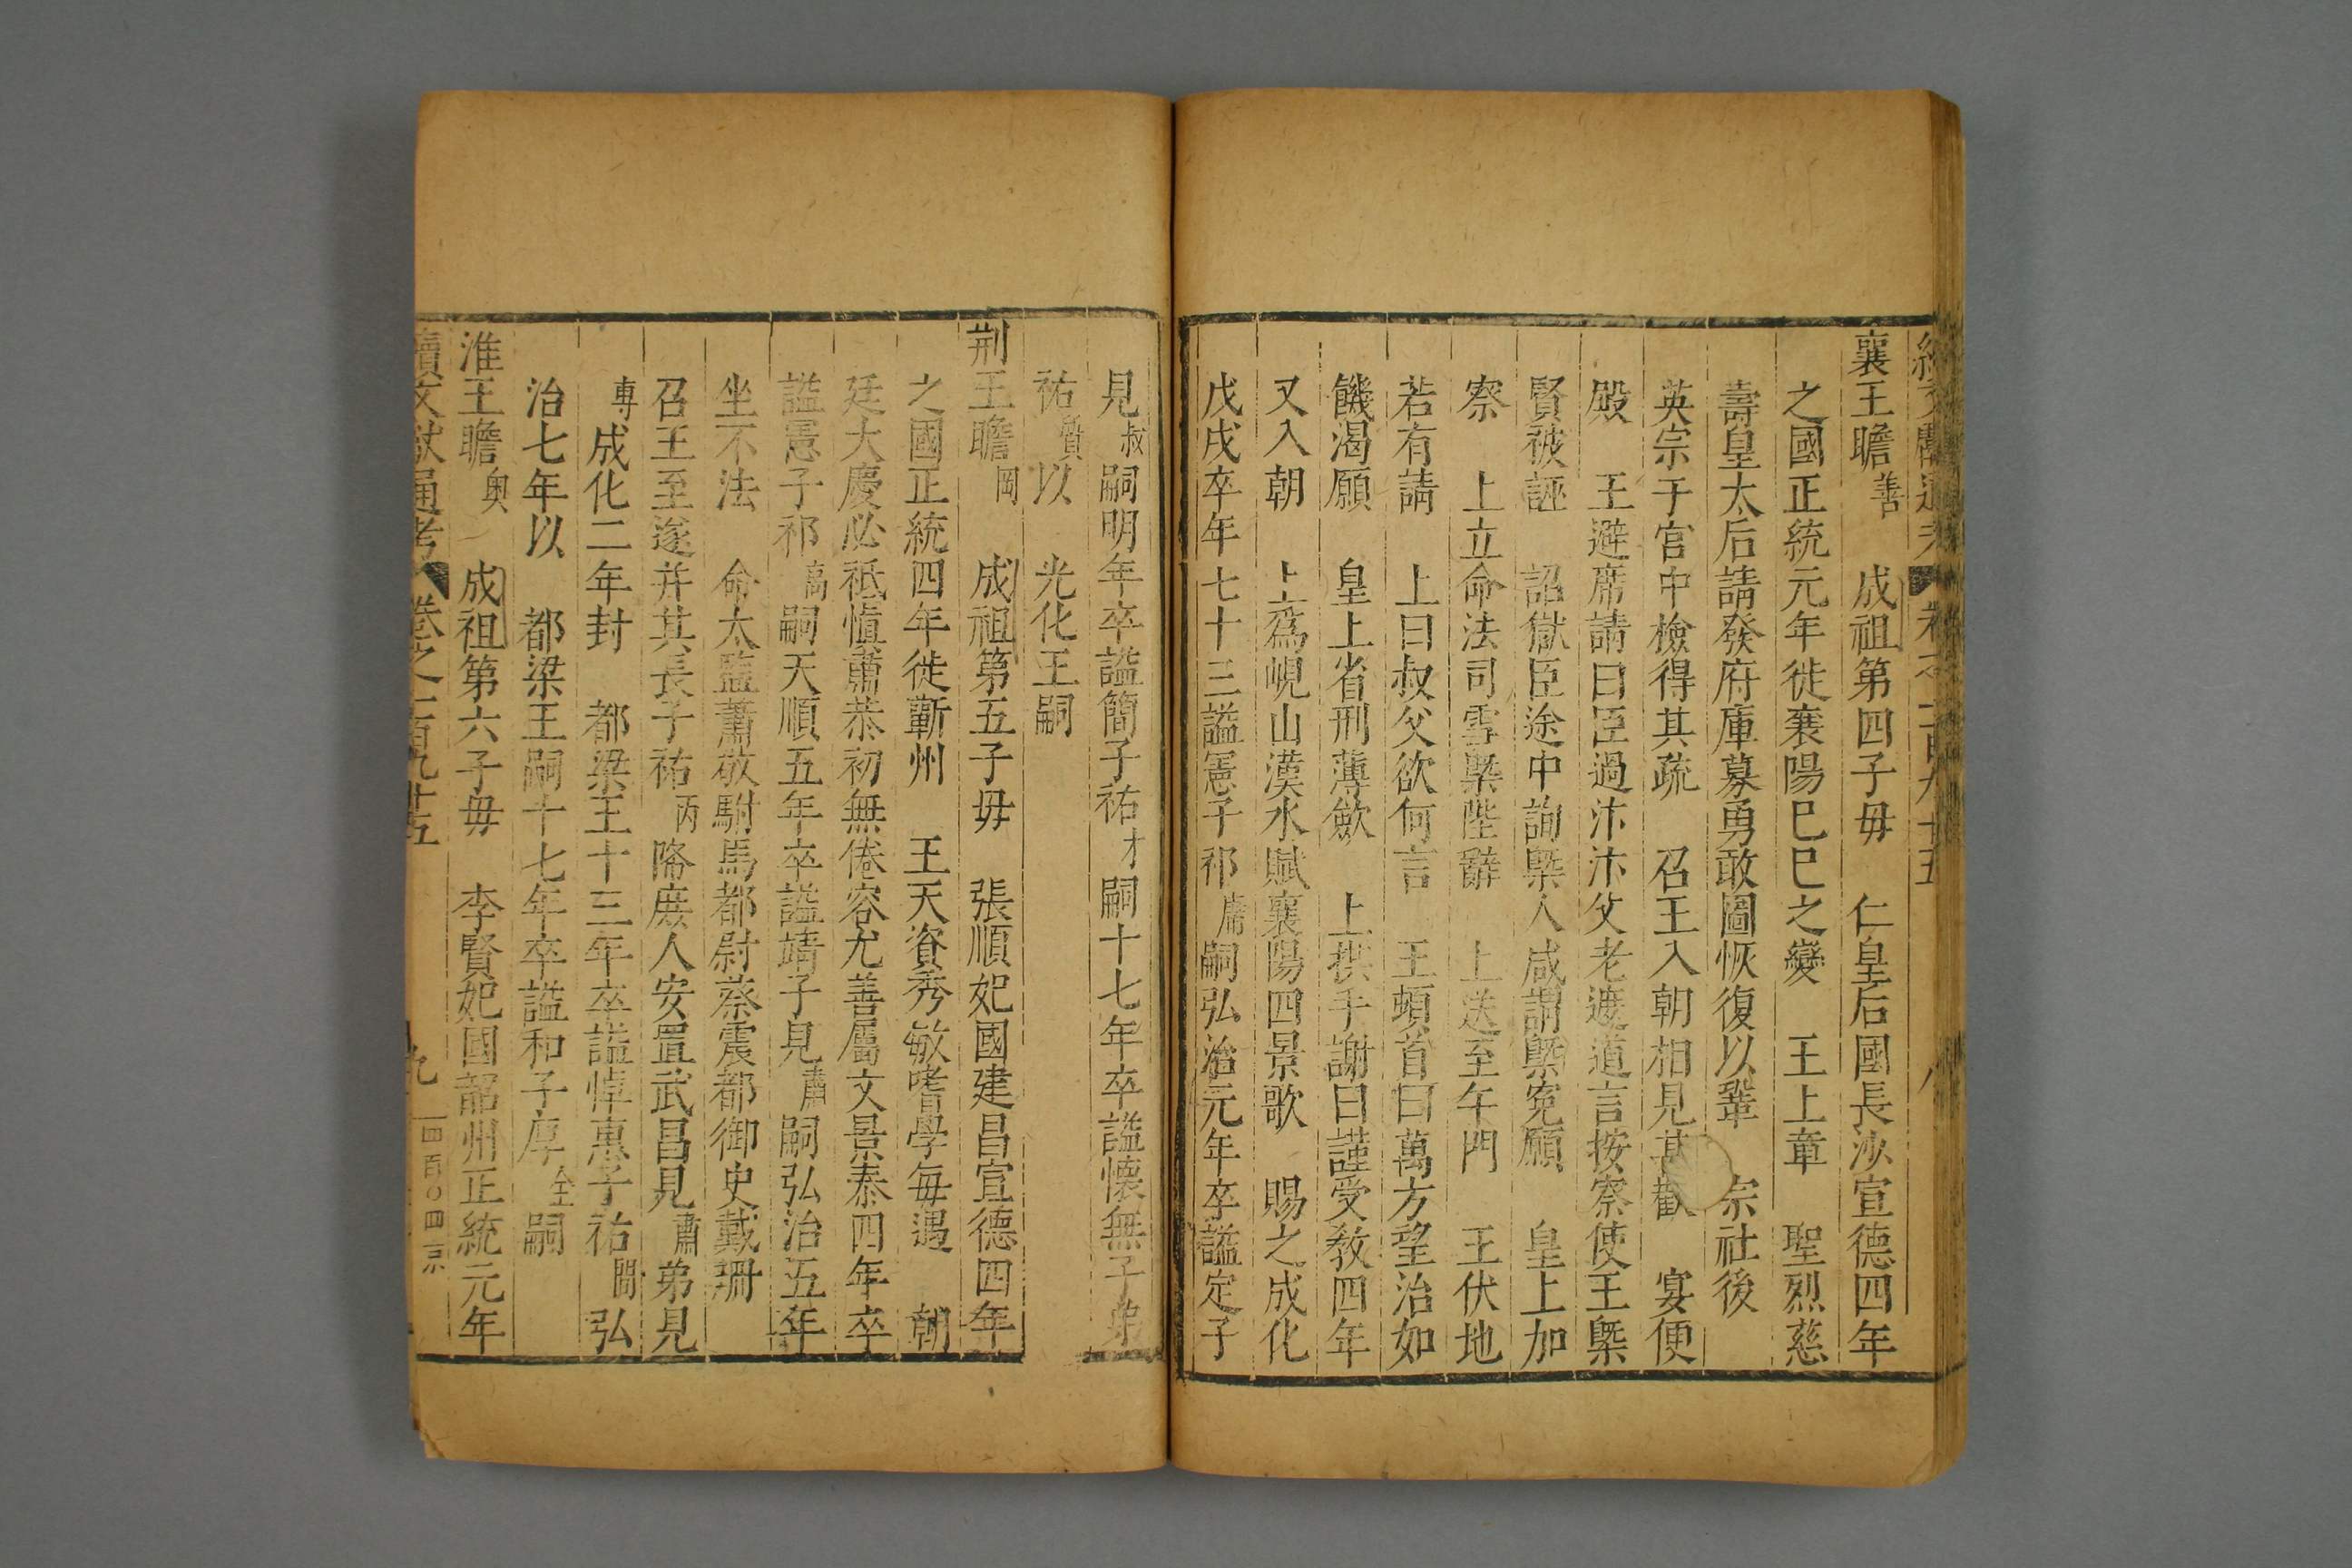 襄王瞻善　成祖第四子毋　仁皇后國長沙宣德四年
之國正統元年徙襄陽巳巳之變　王上章　聖烈慈
壽皇太后請發府庫募勇敢圖恢復以鞏　宗社後
英宗于宮中檢得其疏　召王入朝相見甚歡　宴便
殿　王避席請曰臣過汴汴父老遮道言按察使王槩
賢被誣　詔獄臣途中詢槩人咸謂槩寃願　皇上加
察　上立命法司雪槩陛辭　上送至午門　王伏地
若有請　上曰叔父欲何言　王頓首曰萬方望治如
饑渴願　皇上省刑薄斂　上拱手謝曰謹受敎四年
又入朝　上爲峴山漢水賦襄陽四景歌　賜之成化
戊戌卒年七十三謚憲子祁庸嗣弘治元年卒謚定子
見叔嗣明年卒謚簡子祐才嗣十七年卒謚懷無子弟
祐質以　光化王嗣
荆王瞻岡　成祖第五子毋　張順妃國建昌宣德四年
之國正統四年徙蘄州　王天資秀敏嗜學每遇　朝
廷大慶必祗愼肅恭初無倦容尤善屬文景泰四年卒
謚憲子祁高嗣天順五年卒謚靖子見肅嗣弘治五年
坐不法　命太監蕭敬駙馬都尉蔡震都御史戴珊
召王至遂并其長子祐丙降庻人安置武昌見肅弟見
専成化二年封　都梁王十三年卒謚悼惠子祐閒弘
治七年以　都梁王嗣十七年卒謚和子厚全嗣
淮王瞻奥　成祖第六子毋　李賢妃國韶州正統元年
續文獻通考　卷之二百九十五　九　四百〇四